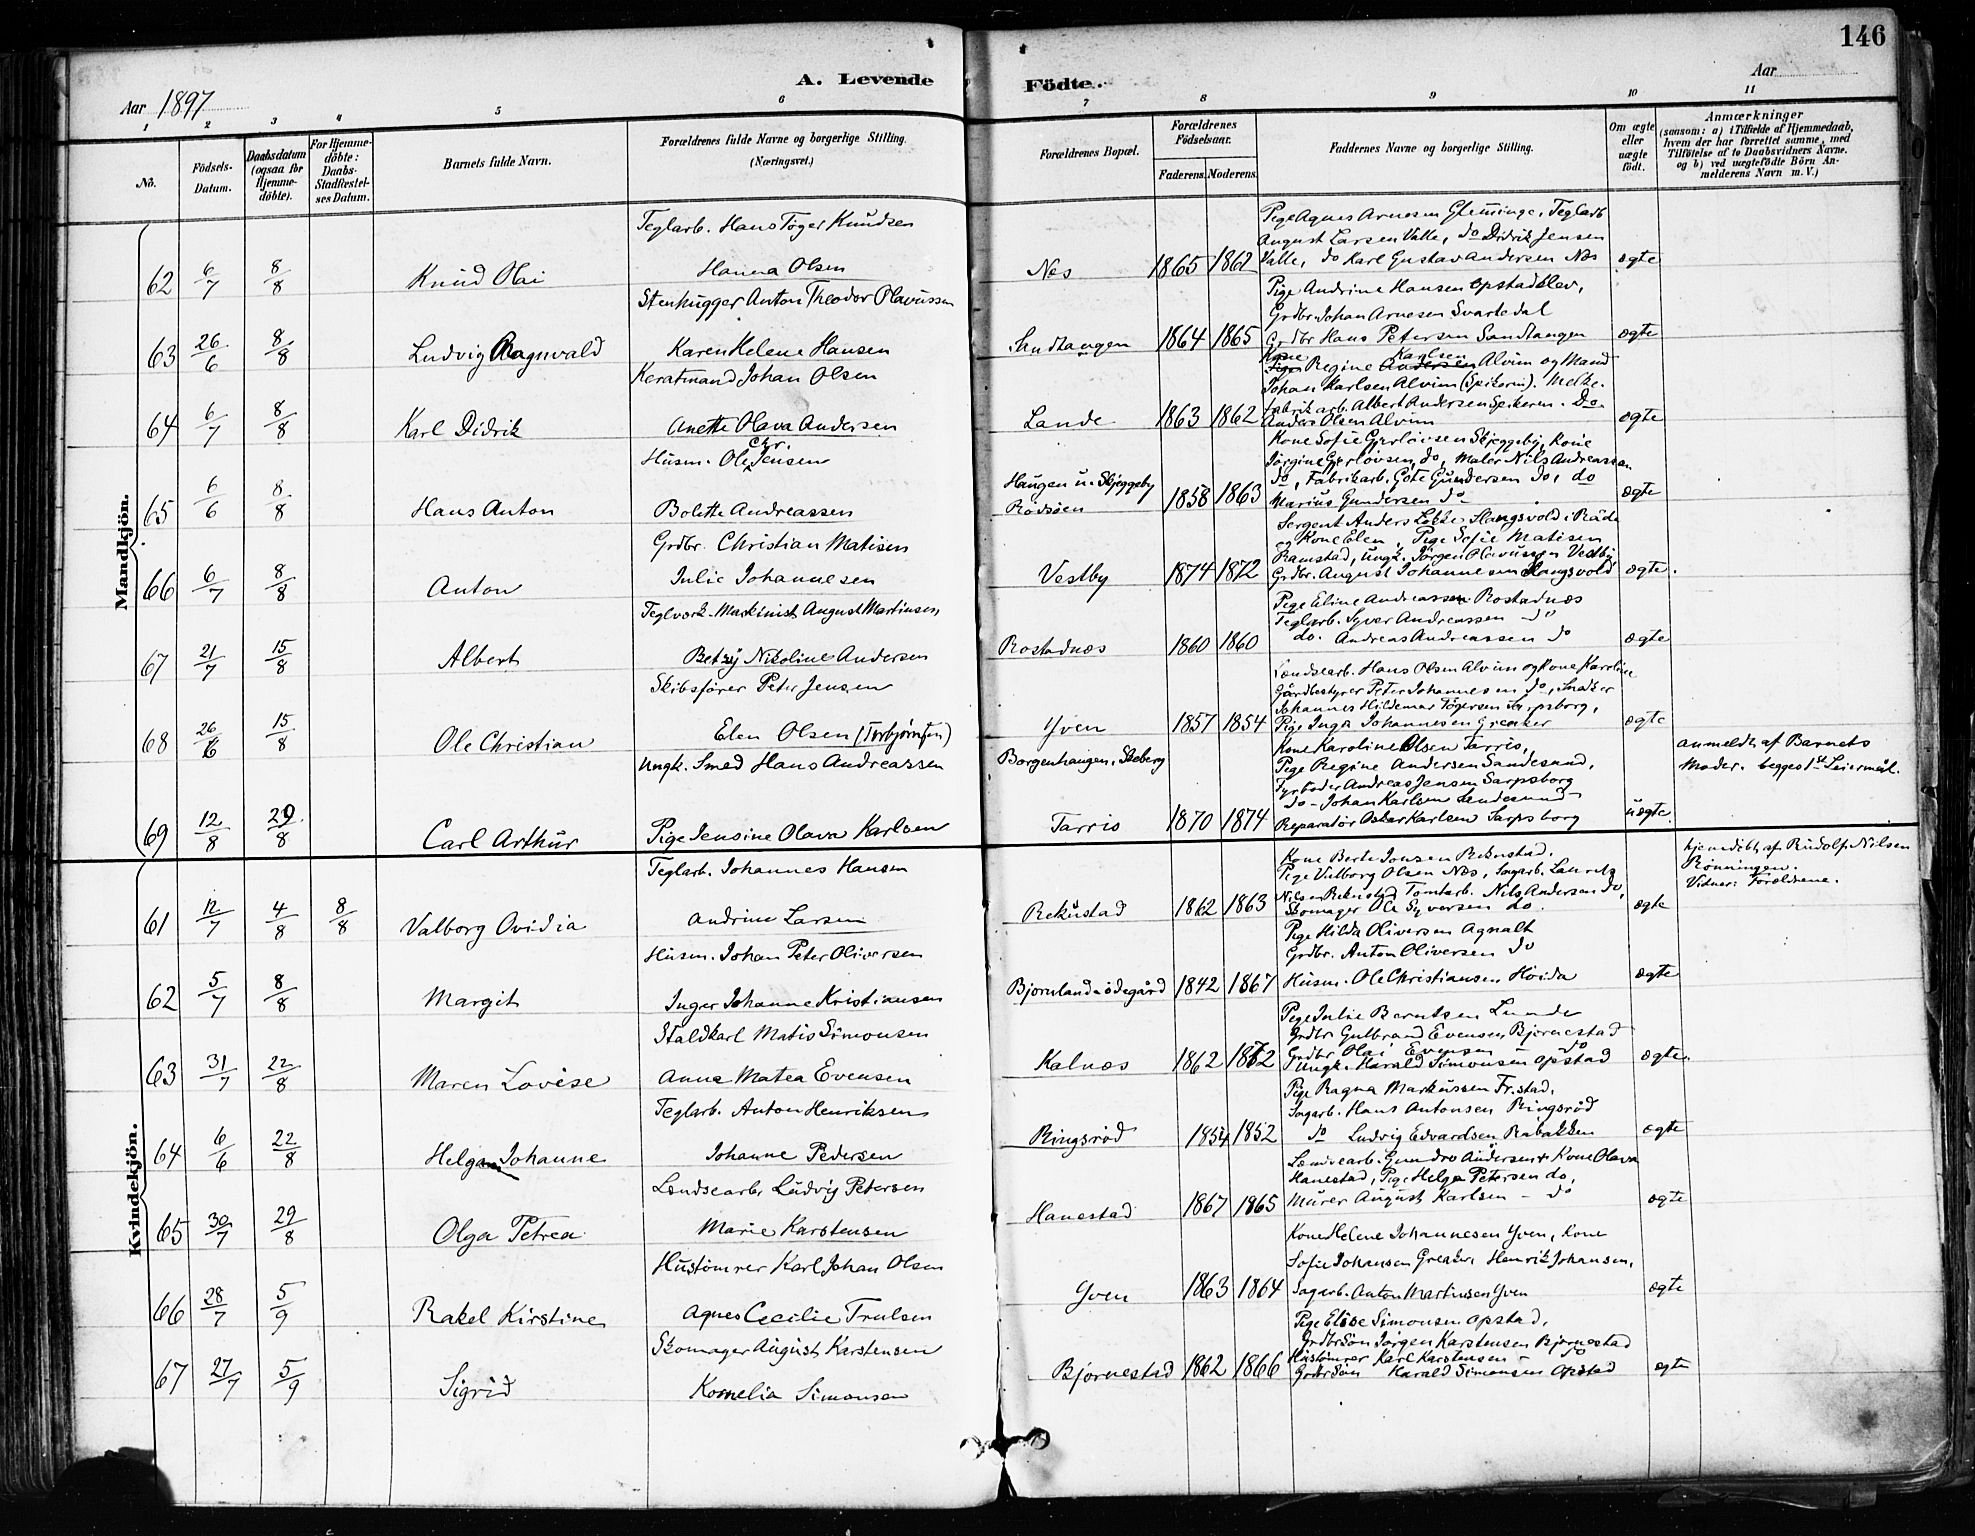 146
A. Levende Födte.
Aar 1897
Aar
1 2 3 4 5 6 7 8 9 10 11
No.
Födsels-Datum.
Daabsdatum (ogsaa for Hjemmedöbte).
For Hjemmedöbte: Daabs-Stadfestelses Datum.
Barnets fulde Navn.
Forældrenes fulde Navne og borgerlige Stilling. (Næringsvei.)
Forældrenes Bopæl.
Forældrenes Födselsaar.
Faderens. Moderens.
Faddernes Navne og borgerlige Stilling.
Om ægte eller uægte født.
Anmærkninger
(saasom: a) i Tilfælde af Hjemmedaab, hvem der har forrettet samme, med Tilföielse af to Daabsvidners Navne. og b) ved uægtefödte Börn Anmelderens Navn m. V.)
Mandkjön.
Teglarb. Hans Töger Knudsen
62 6/7 8/8 Knud Olai Hanna Olsen Nes 1865 1862 ægte
Pige Agnes Arnesen Glemminge, Teglarb
August Larsen Valle, do Didrik Jensen
Valle, do Karl Gustav Andersen Nes
Stenhugger Anton Theodor Olavussen
63 26/6 8/8 Ludvig Ragnvald Karen Helene Hansen Sandtangen 1864 1865 ægte
Pige Andrine Hansen Opstad
Grdbr. Johan Arnesen Svartedal
Grdbr Hans Petersen Sandtangen
Johan Olsen
64 6/7 8/8 Karl Didrik Anette Olava Andersen Lande 1863 1862 ægte
Kone Regine Karlsen Alvim og Mand
Johan Karlsen Alvim (Spikeren). Melke-
fabrikarb. Albert Andersen Spikeren. Do
Anders Olsen Alvim
Husm. Ole Chr. Jensen
65 6/6 8/8 Hans Anton Bolette Andreassen Haugen u. Skjeggeby Rödsöen 1858 1863 ægte
Kone Sofie Gjerlövsen Skjeggeby, Kone
Jörgine Gjerlövsen do, Maler Nils Andreassen
do, Fabrikarb. Göte Gundersen do, do
Marius Gundersen do
Grdbr. Christian Matisen
66 6/7 8/8 Anton Julie Johannesen Vestby 1874 1872 ægte.
Sergent Anders Løkke Slangsvold i Råde
og Kone Elen, Pige Sofie Matisen
Ramstad, Ungk. Jörgen Olavussen Vestby
Grdbr. August Johannesen Slangsvold
Teglverk-Maskinist August Martinsen
67 21/7 15/8 Albert Betsy Nikoline Andersen Rostadnes 1860 1860 ægte
Pige Eline Andreassen Rostadnes
Teglarb. Syver Andreassen do
do. Andreas Andreassen do
Skibsfører Peter Jensen
68 26/6 15/8 Ole Christian Elen Olsen (Torbjørnsen) Yven 1857 1854 ægte
Lændsearb. Hans Olsen Alvim og Kone Karoline
Gårdbestyrer Peter Johannesen do, Snedker
Johannes Hildemar Tögersen Sarpsborg,
Pige Inga Johannesen Greaker
Ungk. Smed Hans Andreassen Borgenhaugen, Skeberg
69 12/8 29/8 Carl Arthur Pige Jensine Olava Karlsen Tarris 1870 1874 uægte.
Kone Karoline Olsen Tarris,
Pige Regine Andersen Sandesund,
Fyrbøder Andreas Jensen Sarpsborg
do - Johan Karlsen Sandesund
Reparatør Oskar Karlsen Sarpsborg
anmeldt af Barnets
Moder. begges 1st Leiermål.
Kvindekjön.
Teglarb. Johannes Hansen
61 12/7 4/8 8/8 Valborg Ovidia Andrine Larsen Rekustad 1862 1863 ægte
Kone Berte Jonsen Rekustad.
Pige Valborg Olsen Nes, Sagarb. Lauritz
Nilsen Rekustad Tomtarb. Nils Andersen do,
Skomager Ole Syversen do.
hjemdöbt af Rudolf Nilsen
Rönningen.
Vidner: Forældrene.
Husm. Johan Peter Oliversen
62 5/7 8/8 Margit Inger Johanne Kristiansen Bjørnland-ødegård 1842 1867 ægte
Pige Hilda Oliversen Agnalt
Grdbr. Anton Oliversen do
Husm. Ole Christiansen Höida
Staldkarl Matis Simonsen
63 31/7 22/8 Maren Lovise Anna Matea Evensen Kalnes 1862 1872 ægte.
Pige Julie Berntsen Lunde
Grdbr Gulbrand Evensen Bjørnestad
Grdbr Olai Evensen do
Ungk. Harald Simonsen Opstad
Teglarb. Anton Henriksen
64 6/6 22/8 Helga Johanne Johanne Pedersen Ringsröd 1854 1852 ægte
Pige Ragna Markussen Fr.stad,
Sagarb. Hans Antonsen Ringsröd
do Ludvig Edvardsen Rabakken
Lændsearb. Ludvig Petersen
65 30/7 29/8 Olga Petrea Marie Karstensen Hanestad 1867 1865 ægte
Lændsearb. Gundro Andersen & Kone Olava
Hanestad, Pige Helga Petersen do,
Murer August Karlsen - do
Hustömrer Karl Johan Olsen
66 28/7 5/9 Rakel Kirstine Agnes Cecilie Trulsen Yven 1863 1864 ægte
Kone Helene Johannesen Yven, Kone
Sofie Johansen Greaker, Henrik Johansen,
Sagarb. Anton Martinsen Yven
Skomager August Karstensen
67 27/7 5/9 Sigrid Kornelia Simonsen Bjørnestad 1862 1866 ægte
Pige Elise Simonsen Opstad,
Grdbrsön Jørgen Karstensen Bjørnestad
Hustömrer Karl Karstensen
Grdbrsön Harald Simonsen Opstad